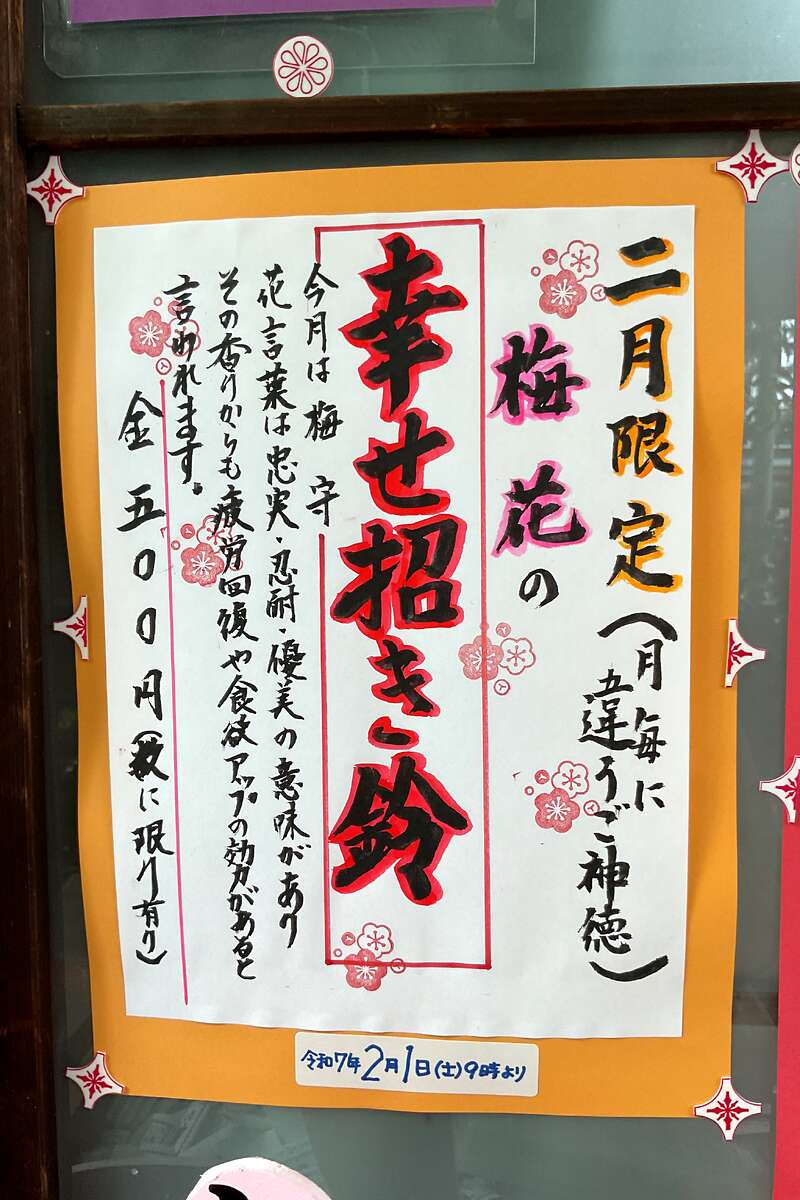 二月限定(月毎に
違うご神徳)
梅花の
幸せ招き鈴
今月は梅守
花言葉は忠実・忍耐・優美の意味があり
その香りからも疲労回復や食欲アップの効力があると
言われます。
金五００円(数に限り有り)
令和7年2月1日(土)9時より